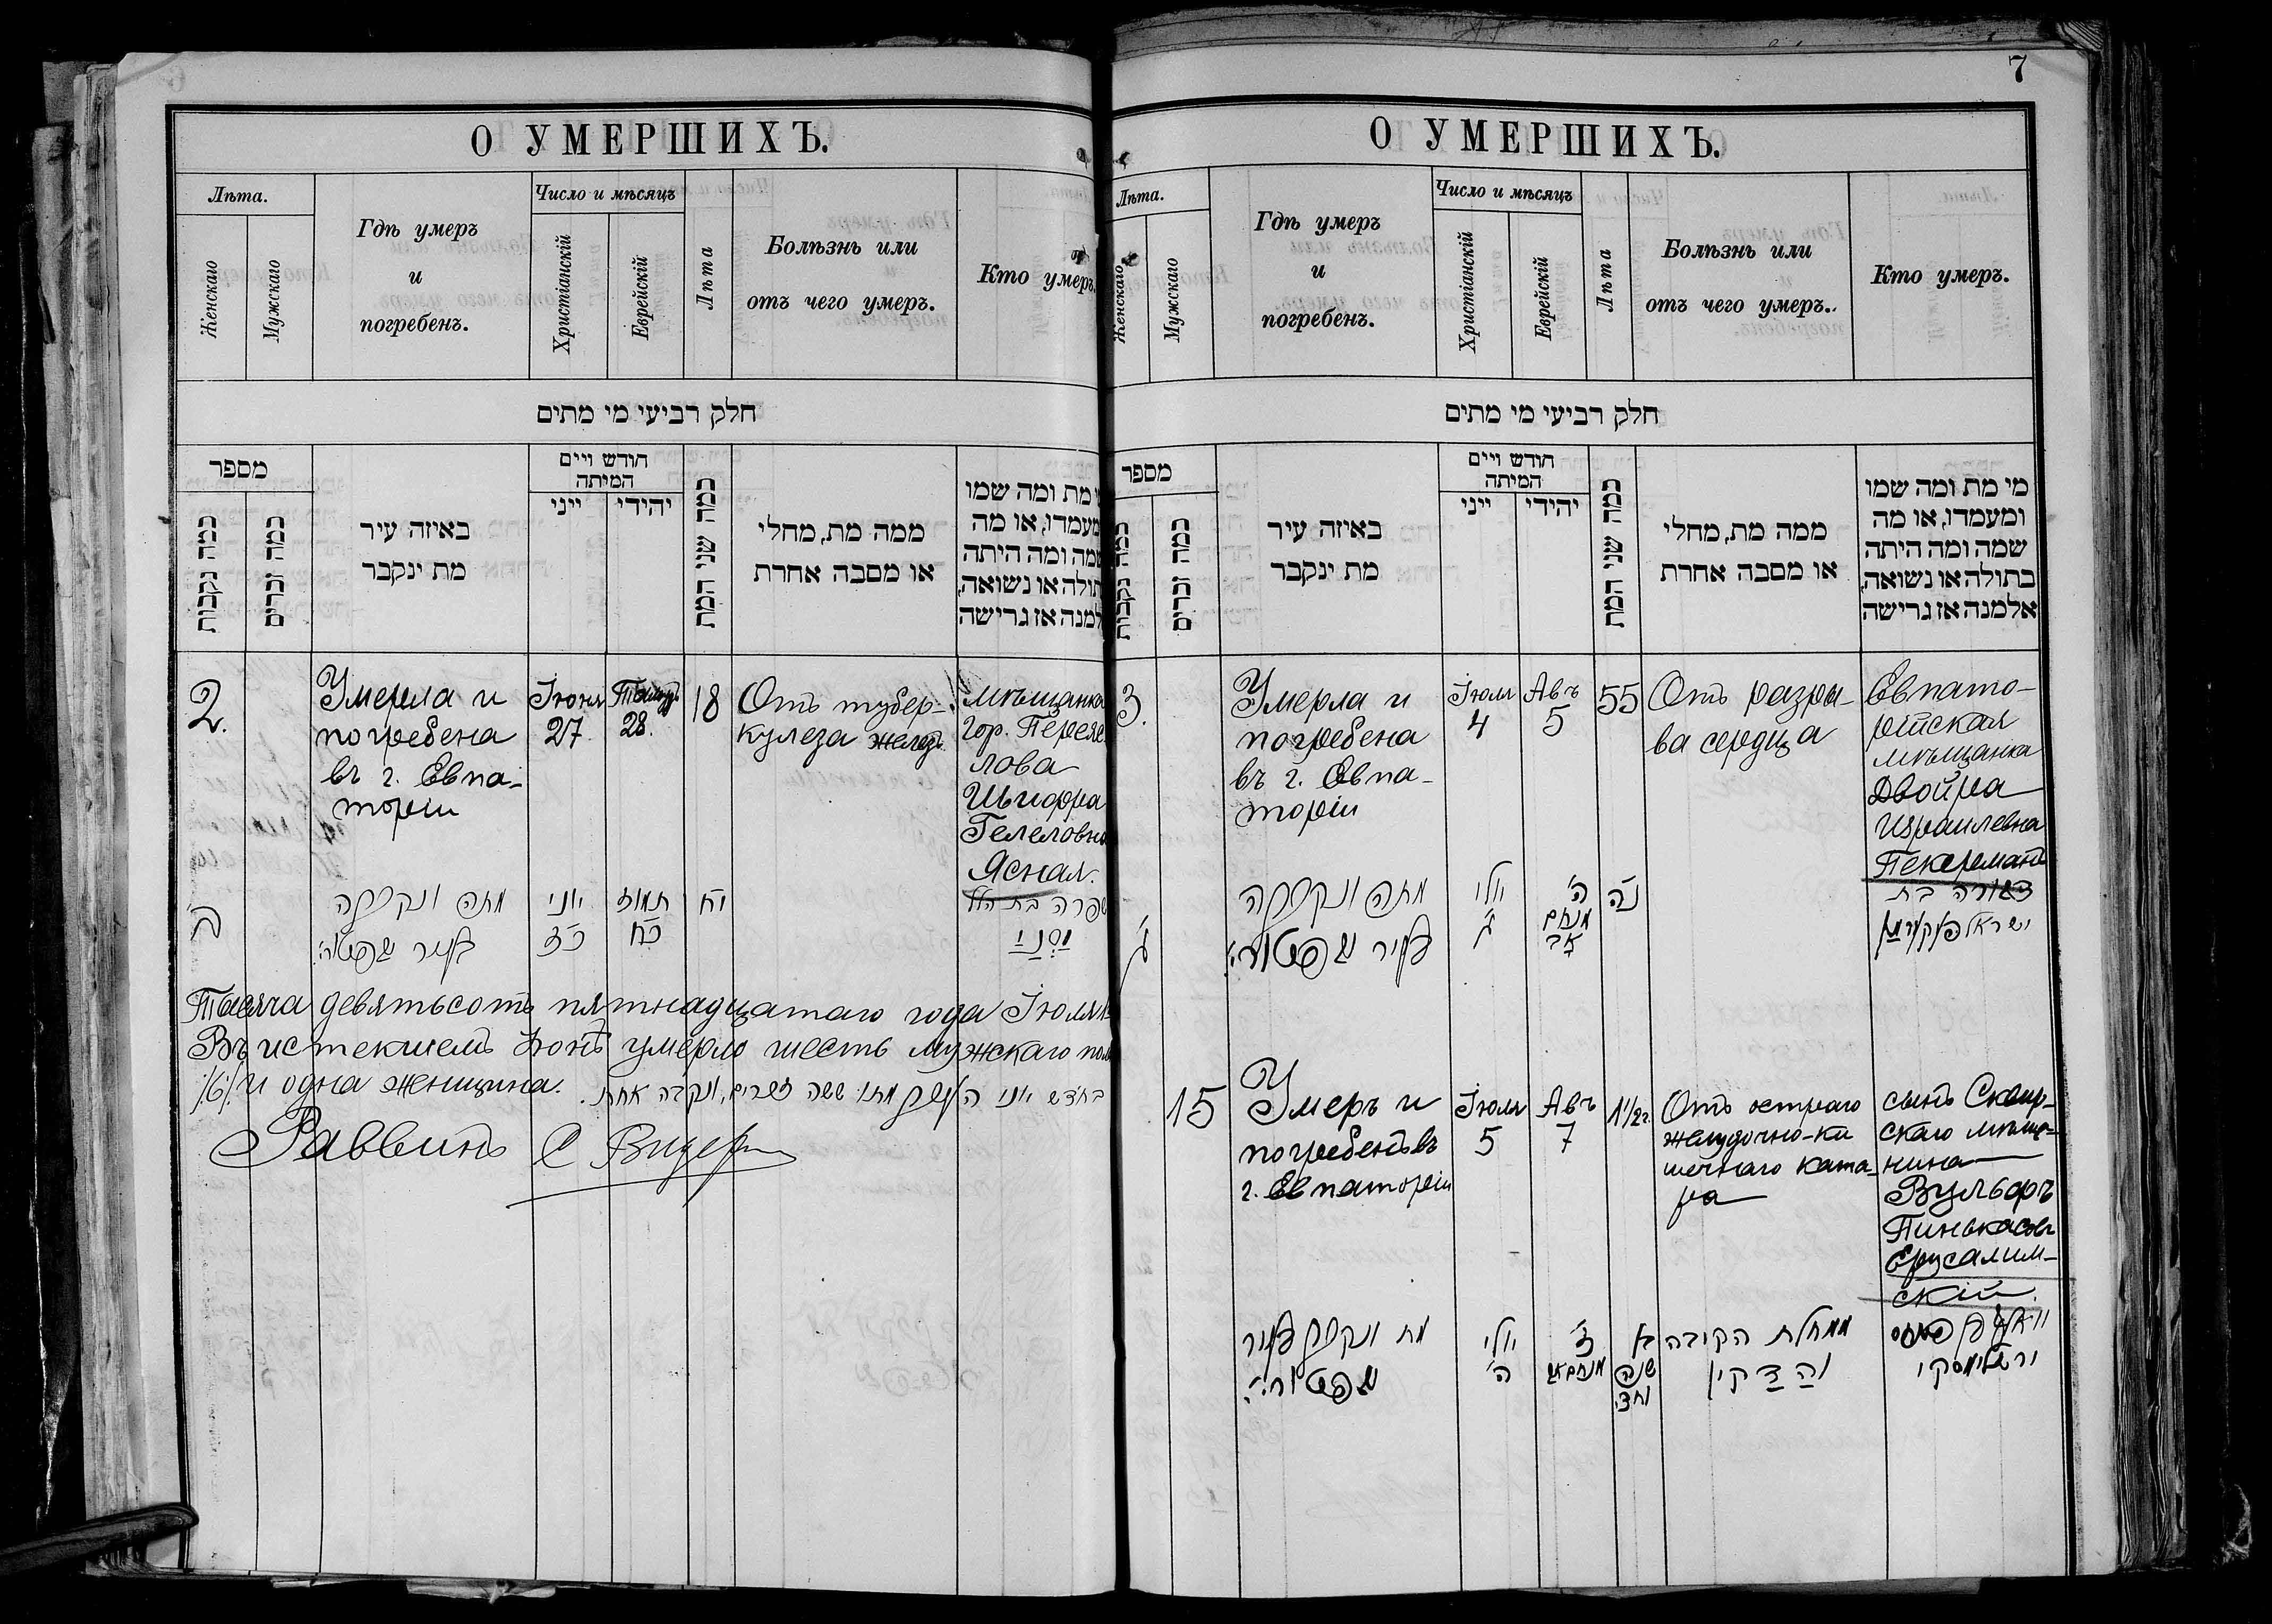 О УМЕРШИХЪ.
Лѣта.
Женскаго
Мужскаго
Гдѣ умеръ
и
погребенъ.
Число и мѣсяцъ
Христіанскій
Еврейскій
Лѣта
Болѣзнь или
отъ чего умеръ.
Кто умеръ.
חלק רביעי מי מתים
מספר
כמה נקבות
כמה זכרים
באיזה עיר
מת ינקבר
חודש ויים
המיתה
ייני
יהידי
כמה שני המת
ממה מת, מחלי
או מסבה אחרת
מת ומה שמו
ומעמדו, או מה
שמה ומה היתה
בתולה או נשואה,
אלמנה אז גרישה
2.
Умерла и
погребена
въ г. Евпа-
торіи
Іюня
27
28.
18
Отъ тубер-
кулеза желез.
мѣщанка
гор. Переяс
лова
Шифра
Гелеловна
Ясная.
מתה ונקברה
בעיר
יוני
כ״ז
תמוז
כ״ח
יח
שפרה בת הלל
יסני
Тысяча девятьсотъ пятнадцатаго года Іюля
Въ истекшемъ Іюнѣ умерло шесть мужскаго пола
/6/ и одна женщина.
בחדש יוני העבר מתו ששה זכרים, ונקבה אחת.
Раввинъ С Видер
7
О УМЕРШИХЪ.
Лѣта.
Женскаго
Мужскаго
Гдѣ умеръ
и
погребенъ.
Число и мѣсяцъ
Христіанскій
Еврейскій
Лѣта
Болѣзнь или
отъ чего умеръ..
Кто умеръ.
חלק רביעי מי מתים
מספר
כמה נקבות
כמה זכרים
באיזה עיר
מת ינקבר
חודש ויים
המיתה
ייני
יהידי
כמה שני המת
ממה מת, מחלי
או מסבה אחרת
מי מת ומה שמו
ומעמדו, או מה
שמה ומה היתה
בתולה או נשואה,
אלמנה אז גרישה
3.
Умерла и
погребена
въ г. Евпа-
торіи
Іюля
4
Авъ
5
55
Отъ разры-
ва сердца
Евпато-
рійская
мѣщанка
Двойра
Израилевна
Пекерманъ
מתה ונקברה
בעיר
יולי
ד׳
ה׳
מנחם
אב
נ״ה
בת
ישראל פעקערמאן
15
Умеръ и
погребенъ въ
г. Евпаторіи
Іюля
5
Авъ
7
1 1/2 г.
Отъ остраго
желудочно-ки
шечнаго ката-
ра
сынъ Сквир-
скаго мѣща-
нина
Вульфъ
Пинькасовъ
Ерусалим-
скій.
מת ונקבר בעיר
יולי
ה׳
ז׳
מנחם אב
בן
שנה
וחצי
ממחלת הקיבה
והדקין
וואלף פנחס
ירשלימסקי